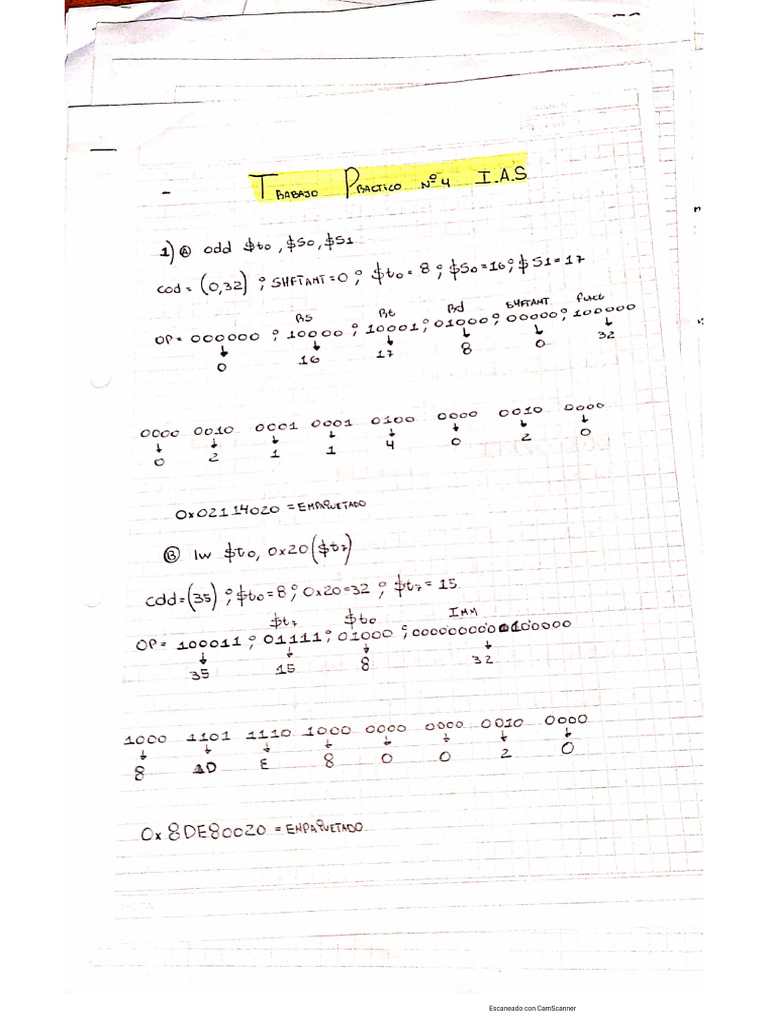 TRABAJO PRACTICO Nº4 I.A.S
1) Ⓐ add $t0, $S0, $S1
cod = (0,32) ; SHFTAMT=0 ; $t0 = 8 ; $S0=16 ; $S1=17
RS Rt Rd SHFTAMT funct
OP = 000000 ; 10000 ; 10001 ; 01000 ; 00000 ; 100000
↓ ↓ ↓ ↓ ↓ ↓
0 16 17 8 0 32
0000 0010 0001 0001 0100 0000 0010 0000
↓ ↓ ↓ ↓ ↓ ↓ ↓ ↓
0 2 1 1 4 0 2 0
0x02114020 = EMPAQUETADO
Ⓑ lw $t0, 0x20($t7)
cod = (35) ; $t0=8 ; 0x20=32 ; $t7 = 15
$t7 $t0 IMM
OP = 100011 ; 01111 ; 01000 ; 0000000000100000
↓ ↓ ↓ ↓
35 15 8 32
1000 1101 1110 1000 0000 0000 0010 0000
↓ ↓ ↓ ↓ ↓ ↓ ↓ ↓
8 D E 8 0 0 2 0
0x8DE80020 = EMPAQUETADO
Escaneado con CamScanner